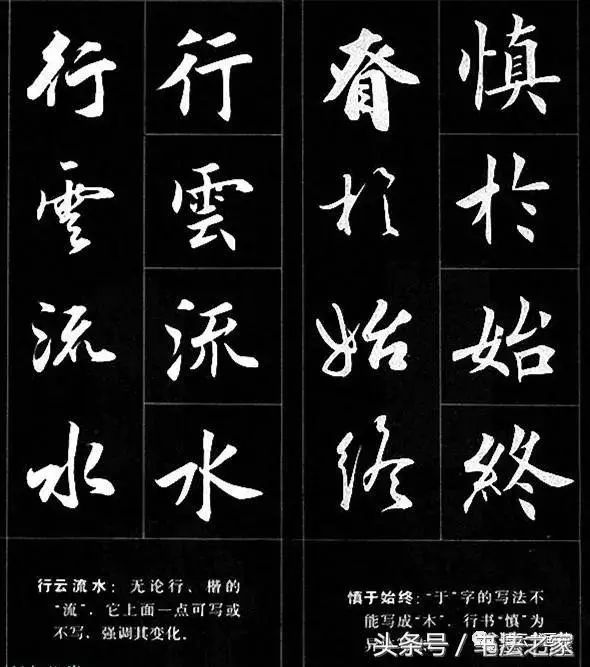 慎於始終
眘於始終
慎于始终：“于”字的写法不
能写成“木”，行书“慎”为
异
行雲流水
行雲流水
行云流水：无论行、楷的
“流”，它上面一点可写或
不写，强调其变化。
头条号／笔法之家